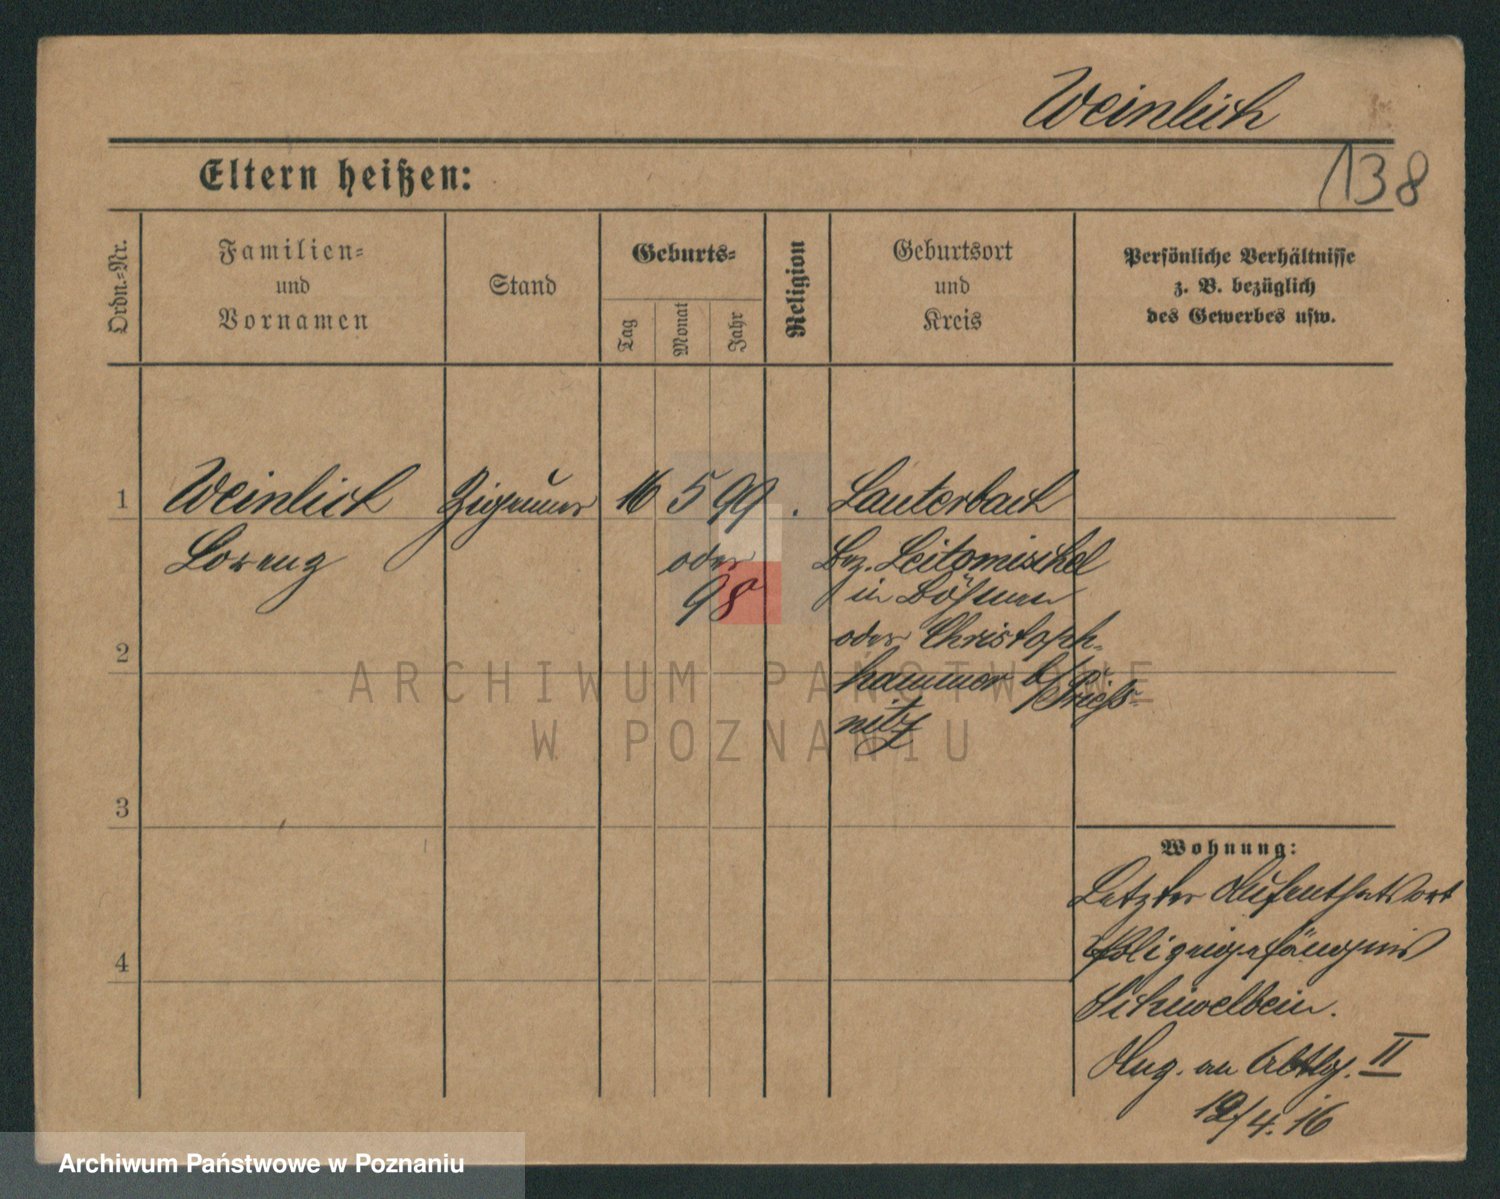 Weinlich
138
Eltern heißen:
Ordn.-Nr.
Familien-
und
Vornamen
Stand
Geburts-
Tag
Monat
Jahr
Religion
Geburtsort
und
Kreis
Persönliche Verhältnisse
z. B. bezüglich
des Gewerbes usw.
1
Weinlich Zigeuner 16 5 99 . Lauterbach
Lorenz oder Bez. Leitomischel
98 in Böhmen
2
oder Christoph-
hammer b/ Prieß-
nitz
3
Wohnung:
Letzter Aufenthaltsort
Polizeigefängnis
Schivelbein.
4
Ang. an Abtlg. II
12/4.16
ARCHIWUM PAŃSTWOWE
W POZNANIU
Archiwum Państwowe w Poznaniu